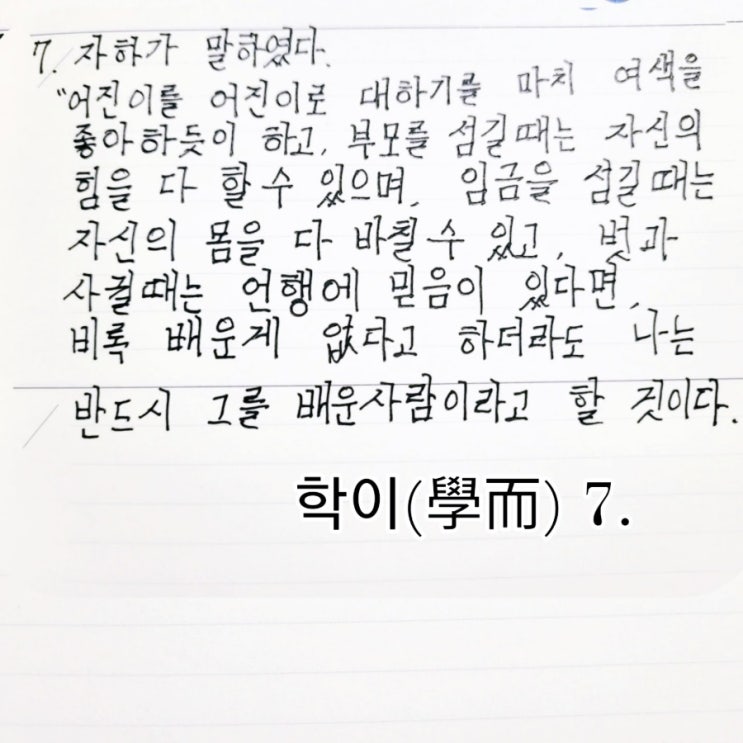 7. 자하가 말하였다.
"어진이를 어진이로 대하기를 마치 여색을
좋아하듯이 하고, 부모를 섬길때는 자신의
힘을 다 할수 있으며, 임금을 섬길때는
자신의 몸을 다 바칠수 있고, 벗과
사귈때는 언행에 믿음이 있다면,
비록 배운게 없다고 하더라도 나는
반드시 그를 배운사람이라고 할 것이다.
학이(學而) 7.